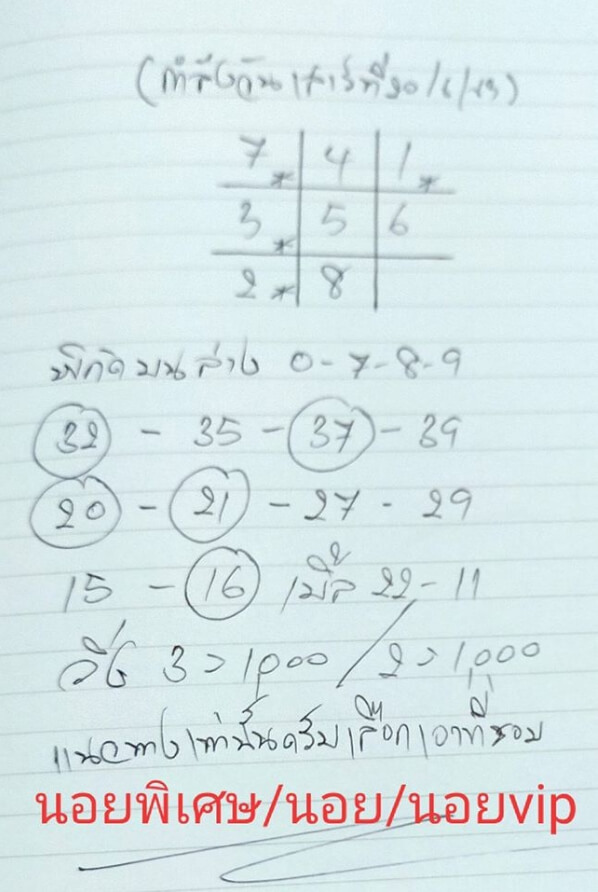 7 4 1
3 5 6
2 8
พิกัด บนล่าง 0-7-8-9
32 - 35 - 37 - 39
20 - 21 - 27 - 29
15 - 16 เบิ้ล 22-11
วิ่ง 3 > 1,000 / 2 > 1,000
แนวทางเท่านั้นครับเลือกเอาที่ชอบ
นอยพิเศษ/นอย/นอยvip